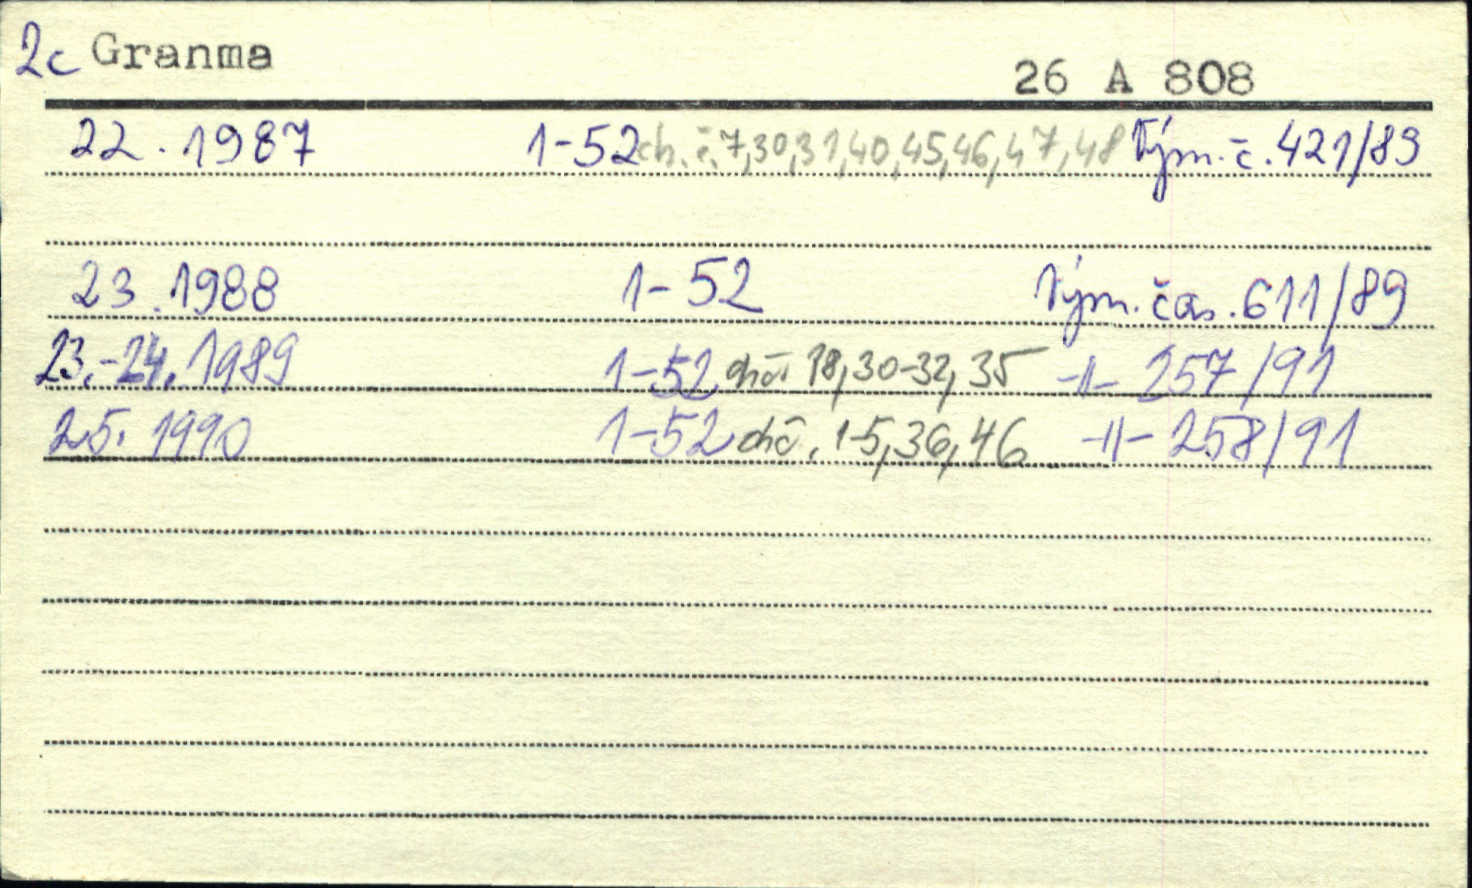 2c Granma
26 A 808
22. 1987 1-52 ch. č. 7,30,31,40,45,46,47,48 Vým. č. 421/89
23. 1988 1-52 Vým. čas. 611/89
23.-24. 1989 1-52 chč. 18,30-32,35 -11- 257/91
25. 1990 1-52 chč. 1-5,36,46 -11- 258/91